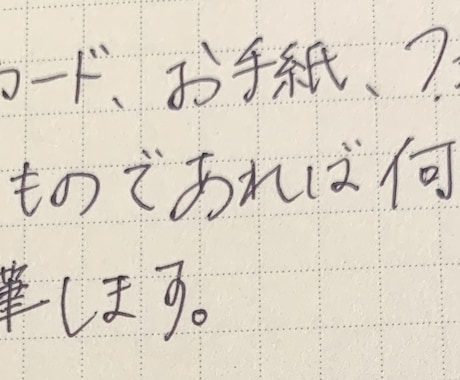 ード、お手紙、フ
ものであれば何
筆します。